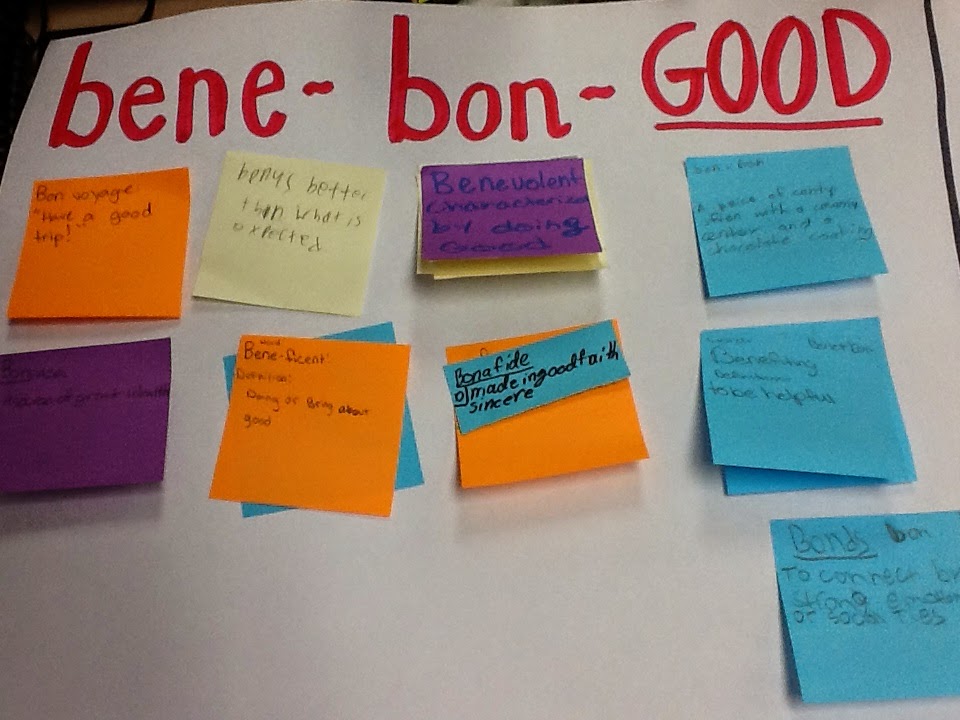 bene~ bon~ GOOD
Bon voyage:
"Have a good
trip!"
benus better
than what is
expected
Benevolent
Characterized
by doing
Good
bon-bon
A peice of candy
often with a creamy
center and a
chocolate coating
Bonanza
word
Bene-ficent:
Defintion:
Doing or Bring about
good
Bonafide
made in good faith
sincere
Benefiting
Definition
to be helpful
Bonds bon
To connect by
strong emotion
or social Ties